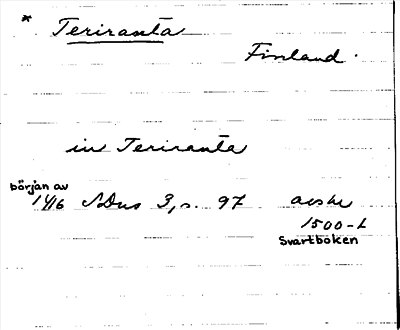 * Teriranta
Finland.
in Teriranta
början av
1416 SDns 3, s. 97 avskr
1500-t
Svartboken